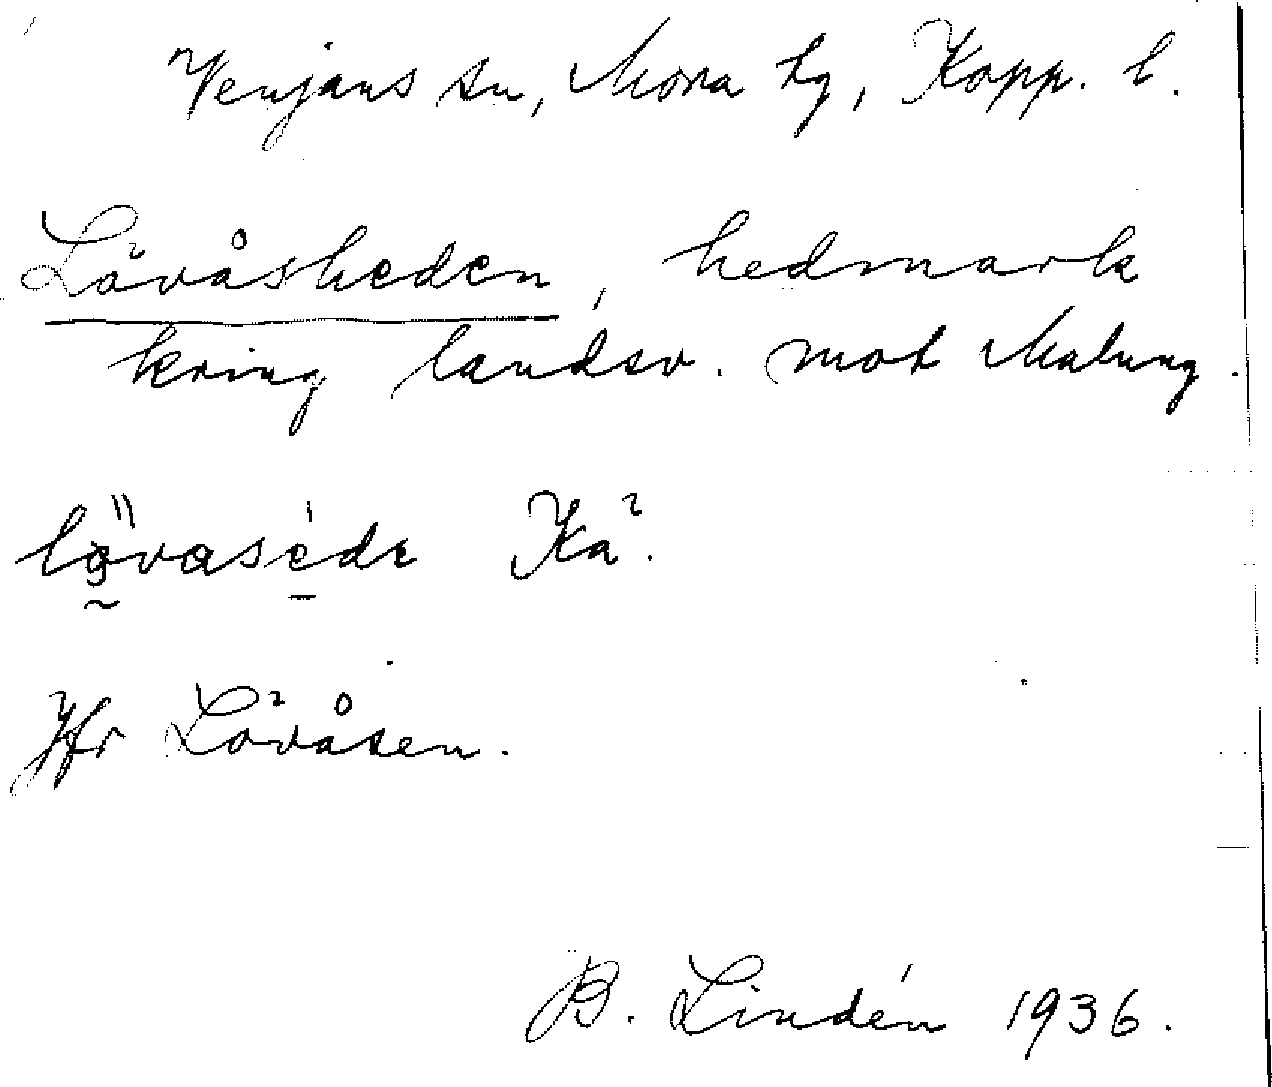 Venjans sn, Mora tg, Kopp. l.
Lövåsheden, hedmark
kring landsv. mot Malung.
Kä².
Jfr Lövåsen.
B. Lindén 1936.